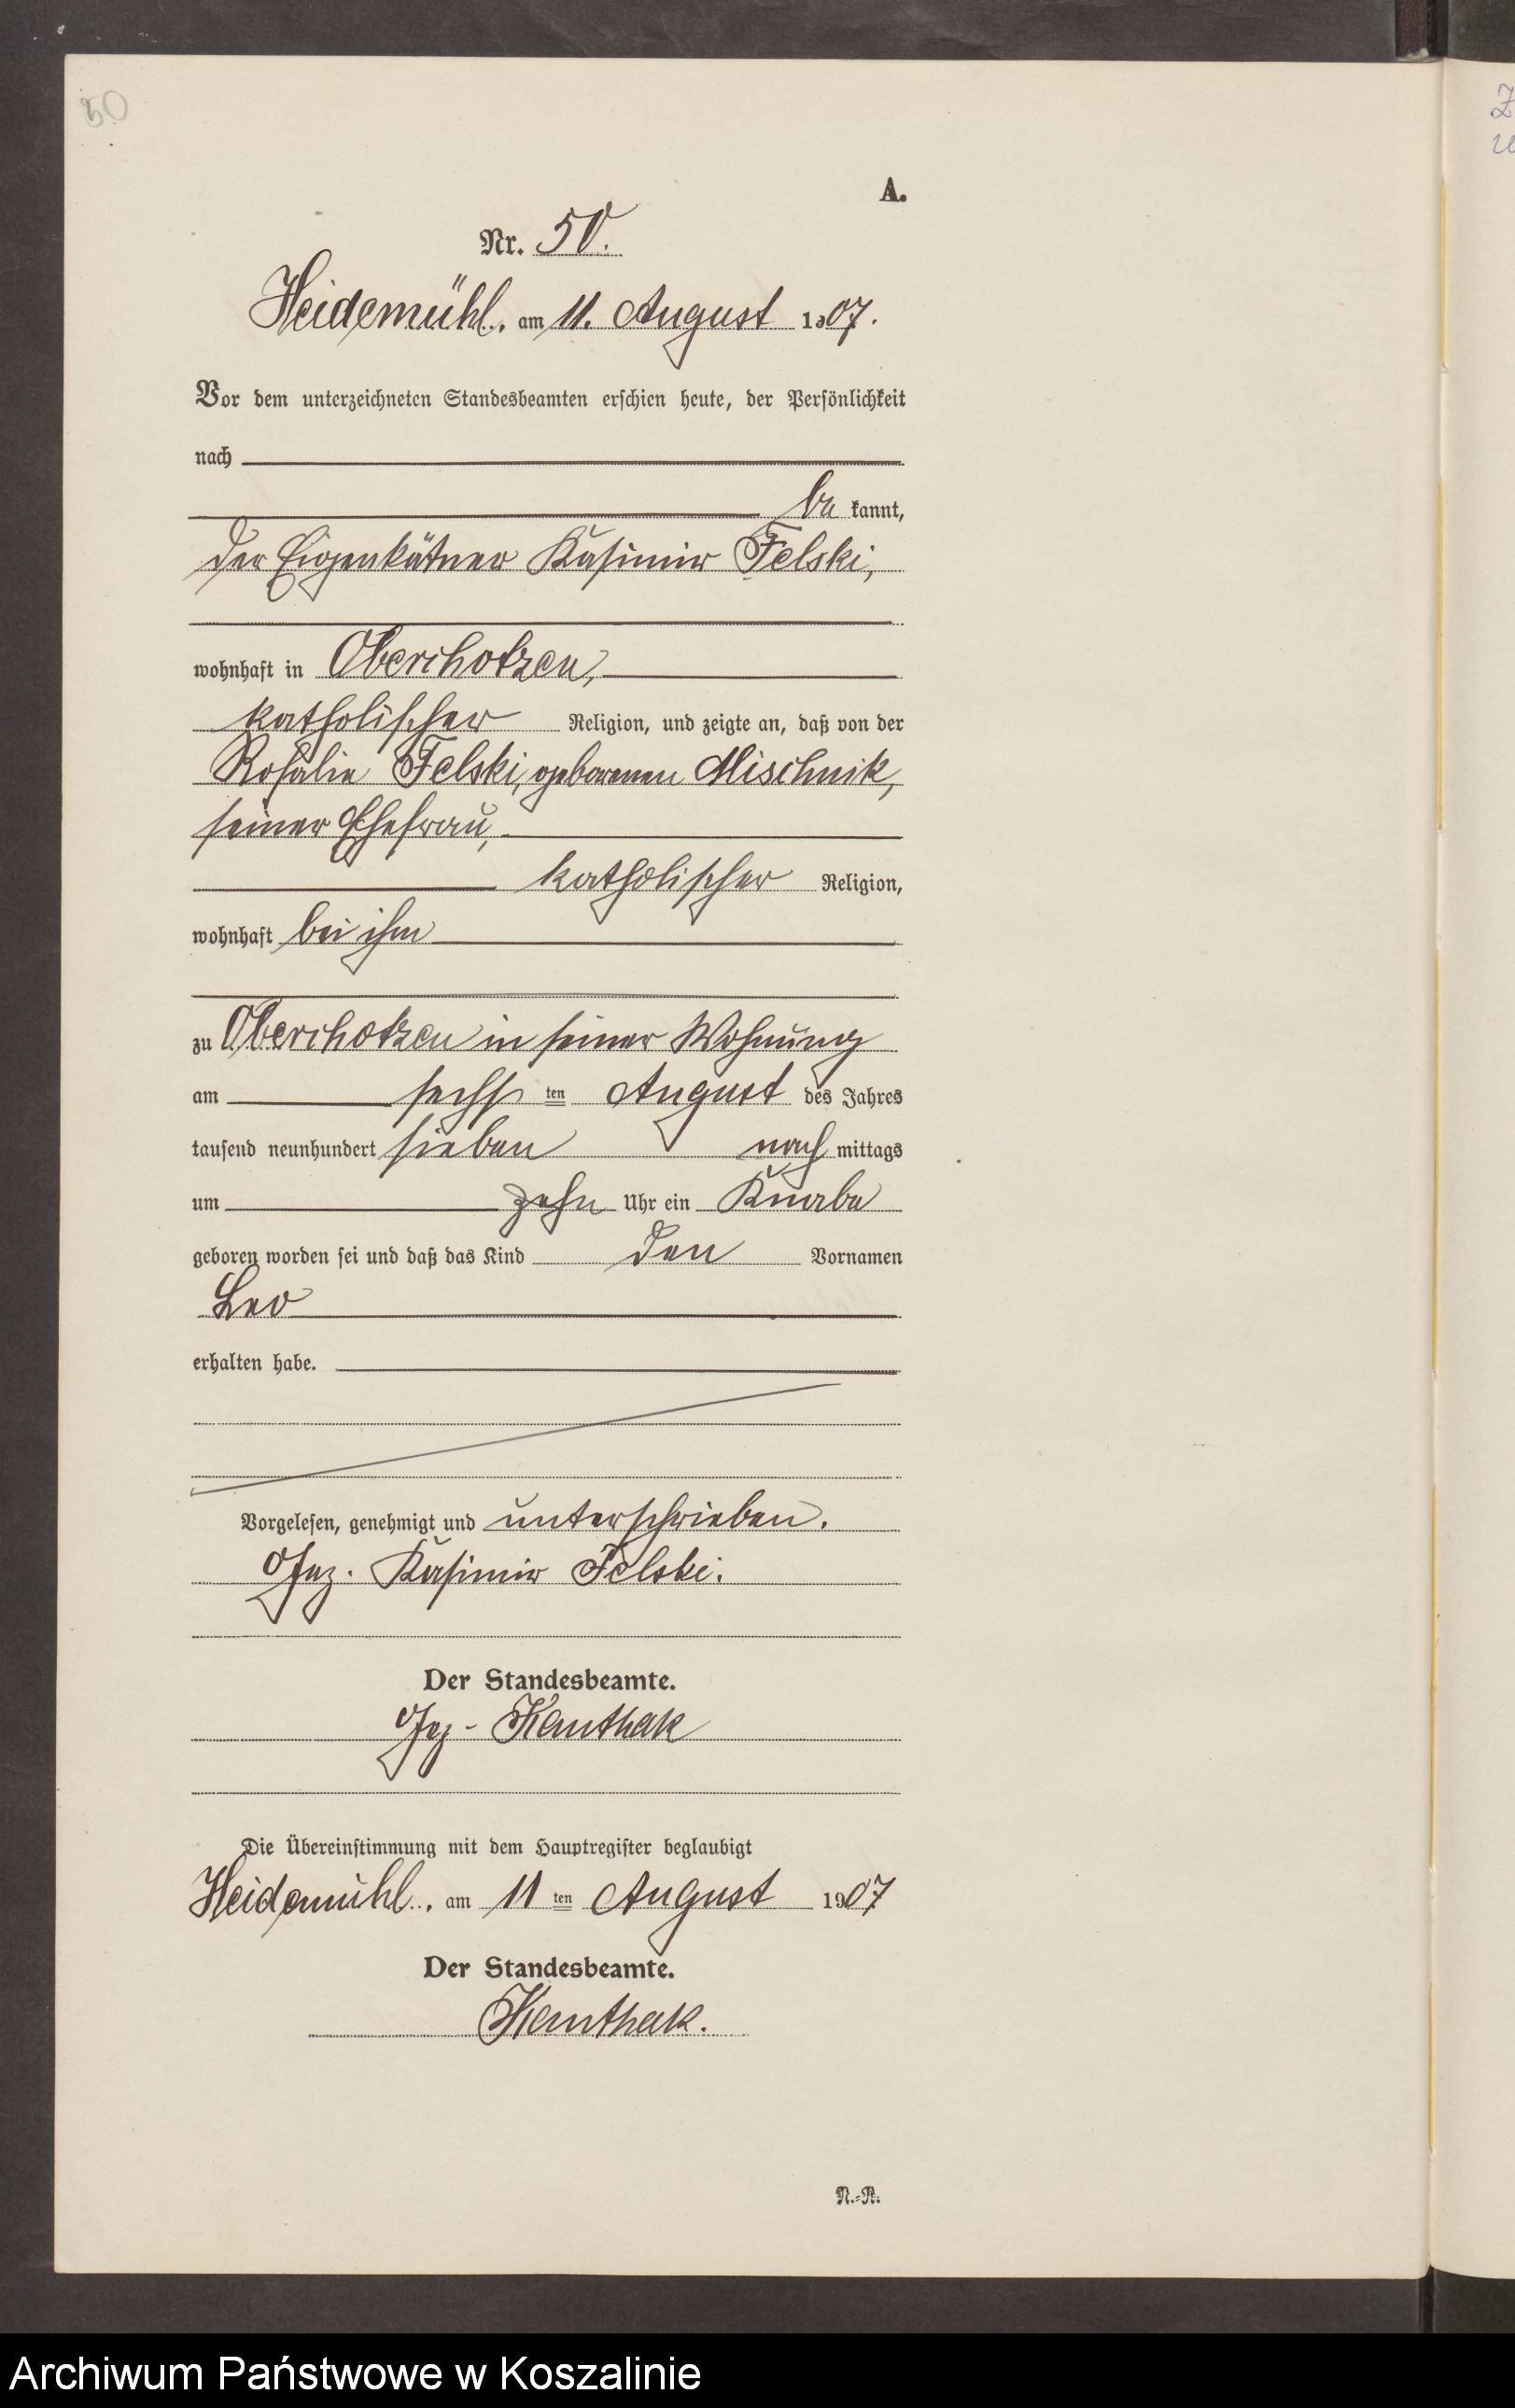 50
A.
Nr. 50.
Heidemühl, am 11. August 1907.
Vor dem unterzeichneten Standesbeamten erschien heute, der Persönlichkeit
nach
be kannt,
der Eigenkätner Kasimir Felski,
wohnhaft in Oberchotzen,
katholischer Religion, und zeigte an, daß von der
Rosalie Felski, geborenen Mischnik,
seiner Ehefrau,
katholischer Religion,
wohnhaft bei ihm
zu Oberchotzen in seiner Wohnung
am sechs ten August des Jahres
tausend neunhundert sieben nach mittags
um zehn Uhr ein Knabe
geboren worden sei und daß das Kind den Vornamen
Leo
erhalten habe.
Vorgelesen, genehmigt und unterschrieben.
Gez. Kasimir Felski.
Der Standesbeamte.
Gez. Kanthak
Die Übereinstimmung mit dem Hauptregister beglaubigt
Heidemühl, am 11 ten August 1907
Der Standesbeamte.
Kanthak.
N.-R.
Archiwum Państwowe w Koszalinie